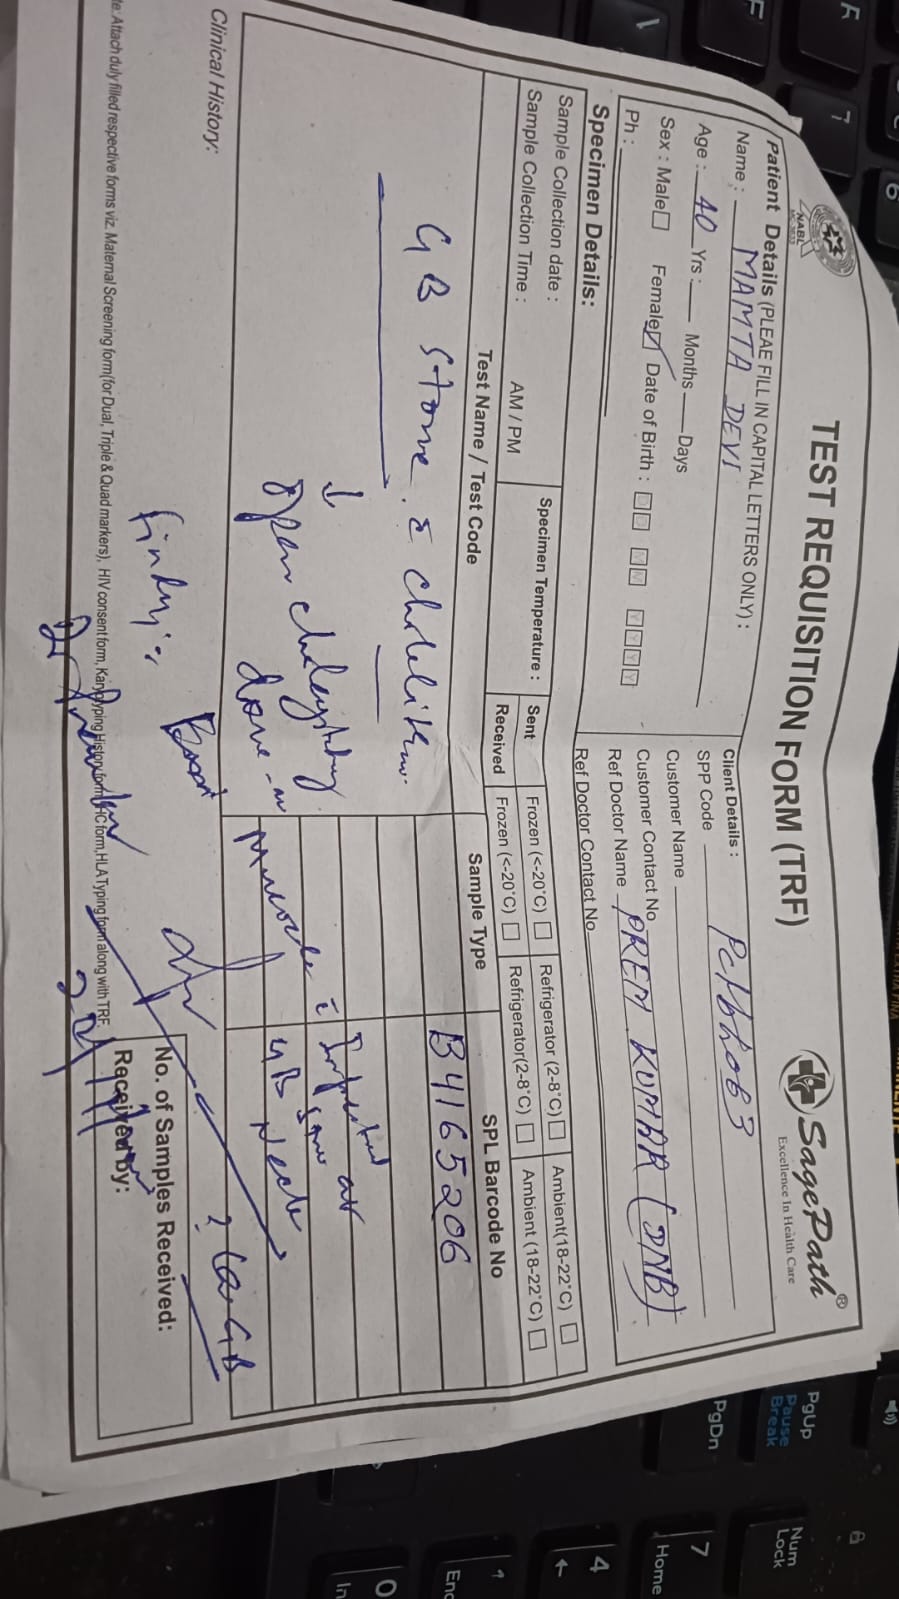 TEST REQUISITION FORM (TRF)
SagePath®
Excellence In Health Care
NABL
Patient Details (PLEAE FILL IN CAPITAL LETTERS ONLY) :
Name : MAMTA DEVI
Age : 40 Yrs : Months Days
Sex : Male Female Date of Birth : D D M M Y Y Y Y
Ph :
Client Details :
SPP Code
Customer Name
Customer Contact No
Ref Doctor Name PREM KUMAR (DNB)
Ref Doctor Contact No
Specimen Details:
Sample Collection date :
Sample Collection Time : AM / PM
Specimen Temperature :
Sent Frozen (<-20°C) Refrigerator (2-8°C) Ambient(18-22°C)
Received Frozen (<-20°C) Refrigerator(2-8°C) Ambient (18-22°C)
Test Name / Test Code Sample Type SPL Barcode No
B4165206
GB stone
open
done
Impacted at
GB Neck
? Ca-GB
Clinical History:
No. of Samples Received:
Received by:
te: Attach duly filled respective forms viz. Maternal Screening form(for Dual, Triple & Quad markers), HIV consent form, Karyotyping History form, IHC form, HLA Typing form along with TRF.
PgUp
Pause
Break
PgDn
Num
Lock
7
Home
4
1
End
0
In